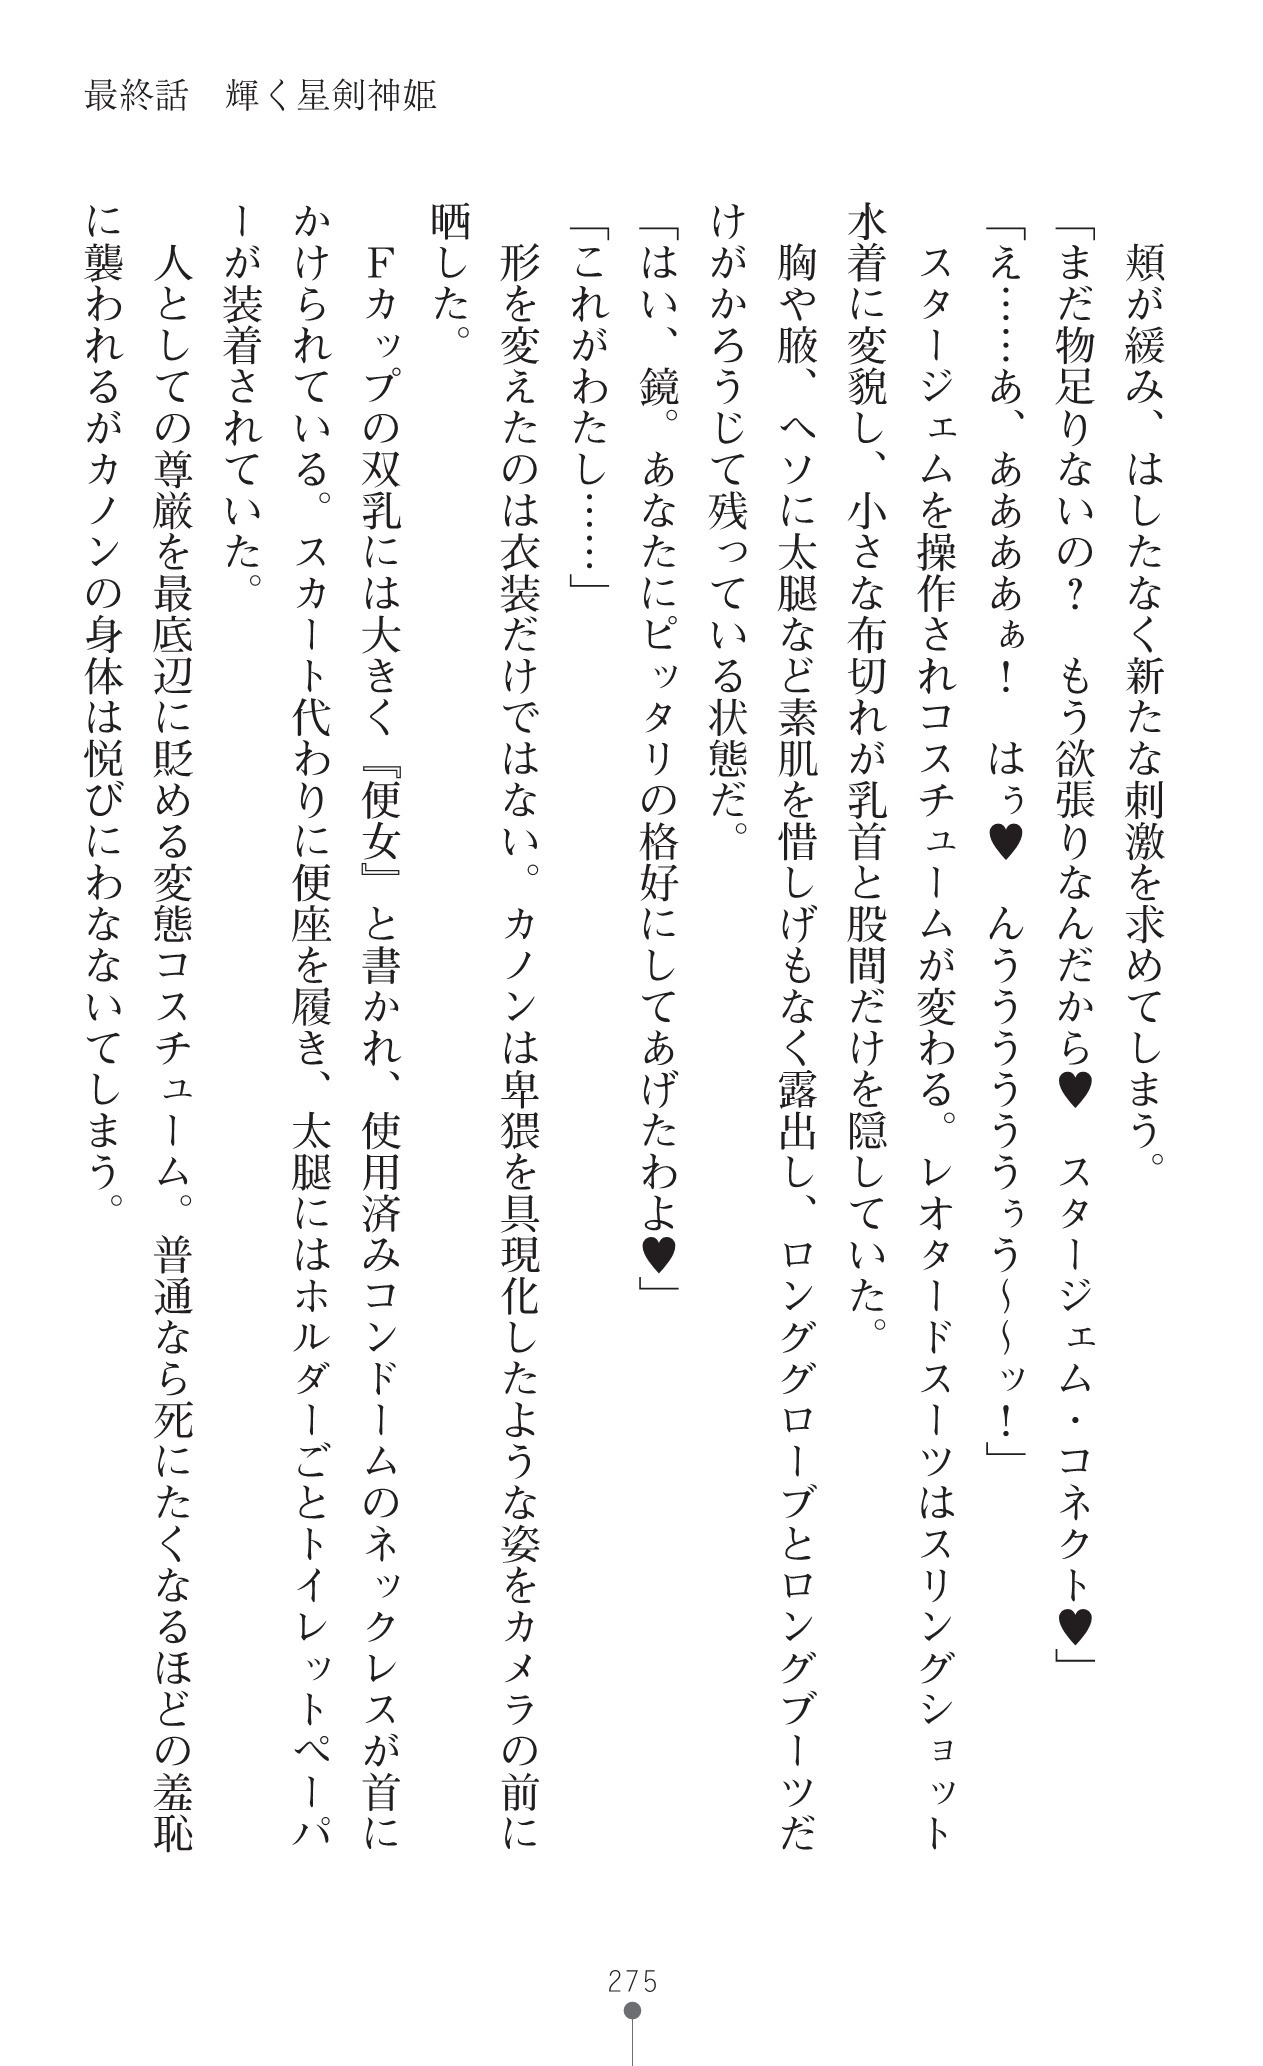 最終話　輝く星剣神姫
　頬が緩み、はしたなく新たな刺激を求めてしまう。
「まだ物足りないの？　もう欲張りなんだから♥　スタージェム・コネクト♥」
「え……あ、ああああぁ！　はぅ♥　んうううううぅう～～ッ！」
　スタージェムを操作されコスチュームが変わる。レオタードスーツはスリングショット
水着に変貌し、小さな布切れが乳首と股間だけを隠していた。
　胸や腋、ヘソに太腿など素肌を惜しげもなく露出し、ロンググローブとロングブーツだ
けがかろうじて残っている状態だ。
「はい、鏡。あなたにピッタリの格好にしてあげたわよ♥」
「これがわたし……」
　形を変えたのは衣装だけではない。カノンは卑猥を具現化したような姿をカメラの前に
晒した。
　Ｆカップの双乳には大きく『便女』と書かれ、使用済みコンドームのネックレスが首に
かけられている。スカート代わりに便座を履き、太腿にはホルダーごとトイレットペーパ
ーが装着されていた。
　人としての尊厳を最底辺に貶める変態コスチューム。普通なら死にたくなるほどの羞恥
に襲われるがカノンの身体は悦びにわなないてしまう。
275